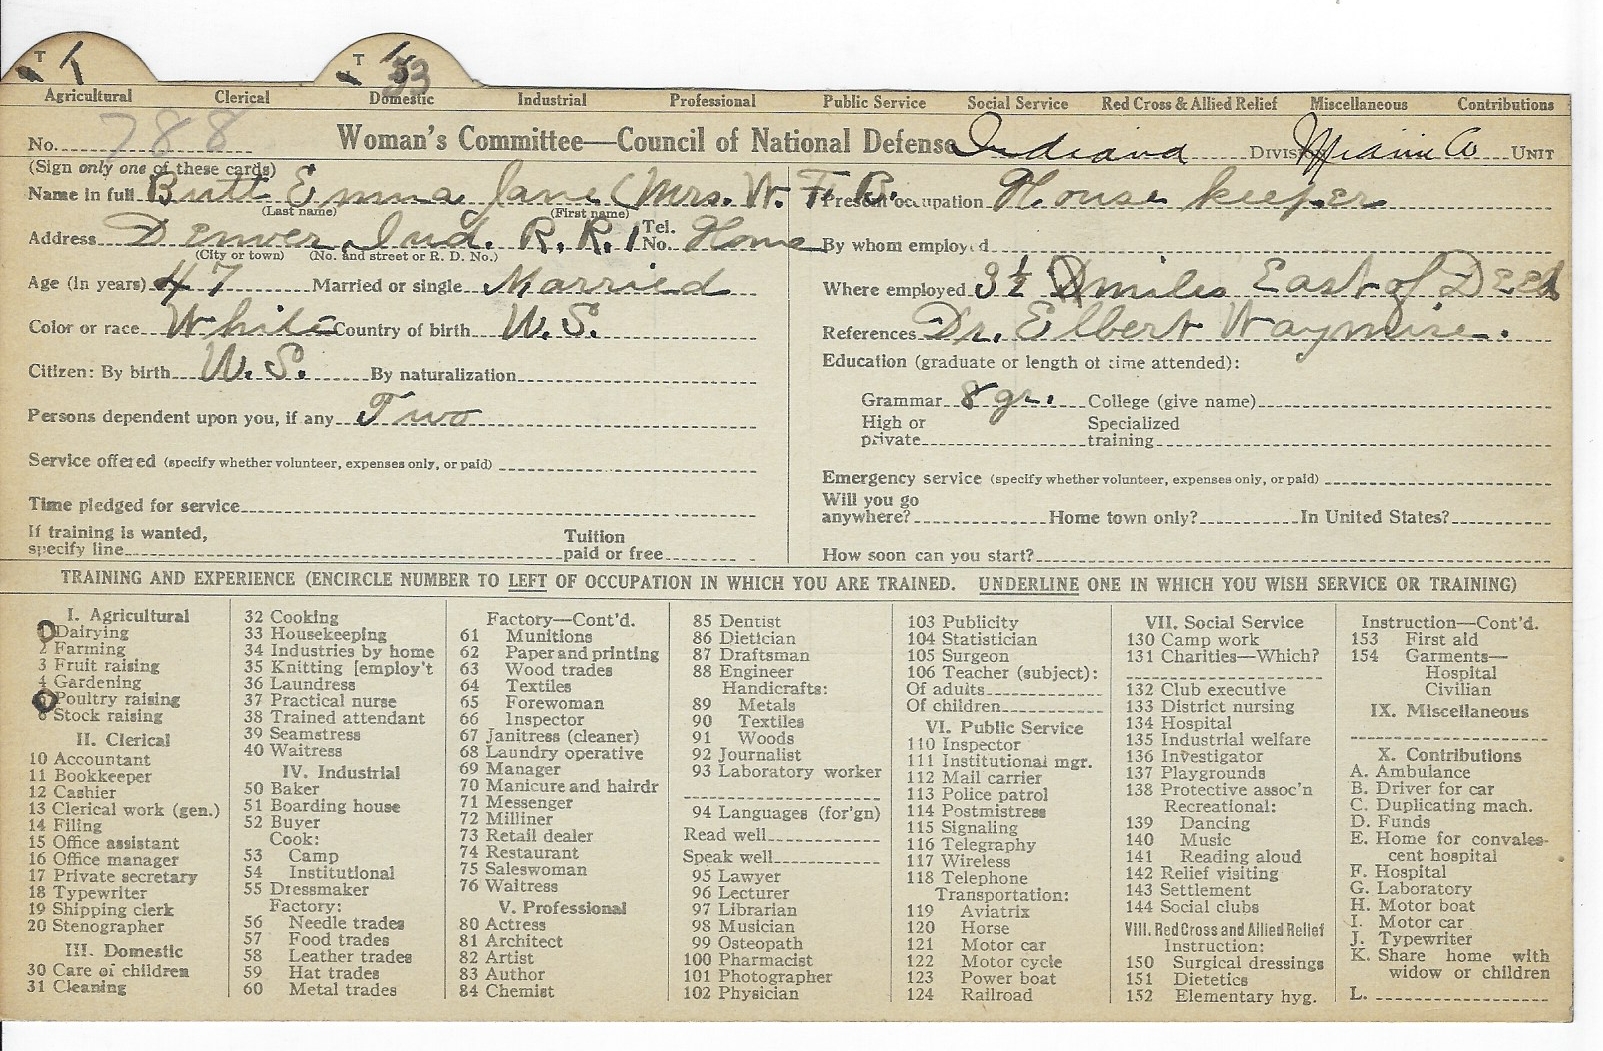 T T T 33
Agricultural Clerical Domestic Industrial Professional Public Service Social Service Red Cross & Allied Relief Miscellaneous Contributions
No. 788 Woman's Committee—Council of National Defense Indiana DIVISION Miami Co UNIT
(Sign only one of these cards)
Name in full Butt Emma Jane (Mrs. W. F. B.
(Last name) (First name)
Address Denver, Ind. R.R.1 Tel. No. Home
(City or town) (No. and street or R. D. No.)
Age (in years) 47 Married or single Married
Color or race White Country of birth U.S.
Citizen: By birth U.S. By naturalization
Persons dependent upon you, if any Two
Service offered (specify whether volunteer, expenses only, or paid)
Time pledged for service
If training is wanted, specify line Tuition paid or free
Present occupation House keeper
By whom employed
Where employed 3½ miles East of Deed
References Dr. Elbert Waymire.
Education (graduate or length of time attended):
Grammar 8 gr. College (give name)
High or private Specialized training
Emergency service (specify whether volunteer, expenses only, or paid)
Will you go anywhere? Home town only? In United States?
How soon can you start?
TRAINING AND EXPERIENCE (ENCIRCLE NUMBER TO LEFT OF OCCUPATION IN WHICH YOU ARE TRAINED. UNDERLINE ONE IN WHICH YOU WISH SERVICE OR TRAINING)
I. Agricultural
1 Dairying
2 Farming
3 Fruit raising
4 Gardening
5 Poultry raising
6 Stock raising
II. Clerical
10 Accountant
11 Bookkeeper
12 Cashier
13 Clerical work (gen.)
14 Filing
15 Office assistant
16 Office manager
17 Private secretary
18 Typewriter
19 Shipping clerk
20 Stenographer
III. Domestic
30 Care of children
31 Cleaning
32 Cooking
33 Housekeeping
34 Industries by home
35 Knitting [employ't
36 Laundress
37 Practical nurse
38 Trained attendant
39 Seamstress
40 Waitress
IV. Industrial
50 Baker
51 Boarding house
52 Buyer
Cook:
53 Camp
54 Institutional
55 Dressmaker
Factory:
56 Needle trades
57 Food trades
58 Leather trades
59 Hat trades
60 Metal trades
Factory—Cont'd.
61 Munitions
62 Paper and printing
63 Wood trades
64 Textiles
65 Forewoman
66 Inspector
67 Janitress (cleaner)
68 Laundry operative
69 Manager
70 Manicure and hairdr
71 Messenger
72 Milliner
73 Retail dealer
74 Restaurant
75 Saleswoman
76 Waitress
V. Professional
80 Actress
81 Architect
82 Artist
83 Author
84 Chemist
85 Dentist
86 Dietician
87 Draftsman
88 Engineer
Handicrafts:
89 Metals
90 Textiles
91 Woods
92 Journalist
93 Laboratory worker
94 Languages (for'gn)
Read well
Speak well
95 Lawyer
96 Lecturer
97 Librarian
98 Musician
99 Osteopath
100 Pharmacist
101 Photographer
102 Physician
103 Publicity
104 Statistician
105 Surgeon
106 Teacher (subject):
Of adults
Of children
VI. Public Service
110 Inspector
111 Institutional mgr.
112 Mail carrier
113 Police patrol
114 Postmistress
115 Signaling
116 Telegraphy
117 Wireless
118 Telephone
Transportation:
119 Aviatrix
120 Horse
121 Motor car
122 Motor cycle
123 Power boat
124 Railroad
VII. Social Service
130 Camp work
131 Charities—Which?
132 Club executive
133 District nursing
134 Hospital
135 Industrial welfare
136 Investigator
137 Playgrounds
138 Protective assoc'n
Recreational:
139 Dancing
140 Music
141 Reading aloud
142 Relief visiting
143 Settlement
144 Social clubs
VIII. Red Cross and Allied Relief
Instruction:
150 Surgical dressings
151 Dietetics
152 Elementary hyg.
Instruction—Cont'd.
153 First aid
154 Garments—
Hospital
Civilian
IX. Miscellaneous
X. Contributions
A. Ambulance
B. Driver for car
C. Duplicating mach.
D. Funds
E. Home for convales-
cent hospital
F. Hospital
G. Laboratory
H. Motor boat
I. Motor car
J. Typewriter
K. Share home with
widow or children
L.